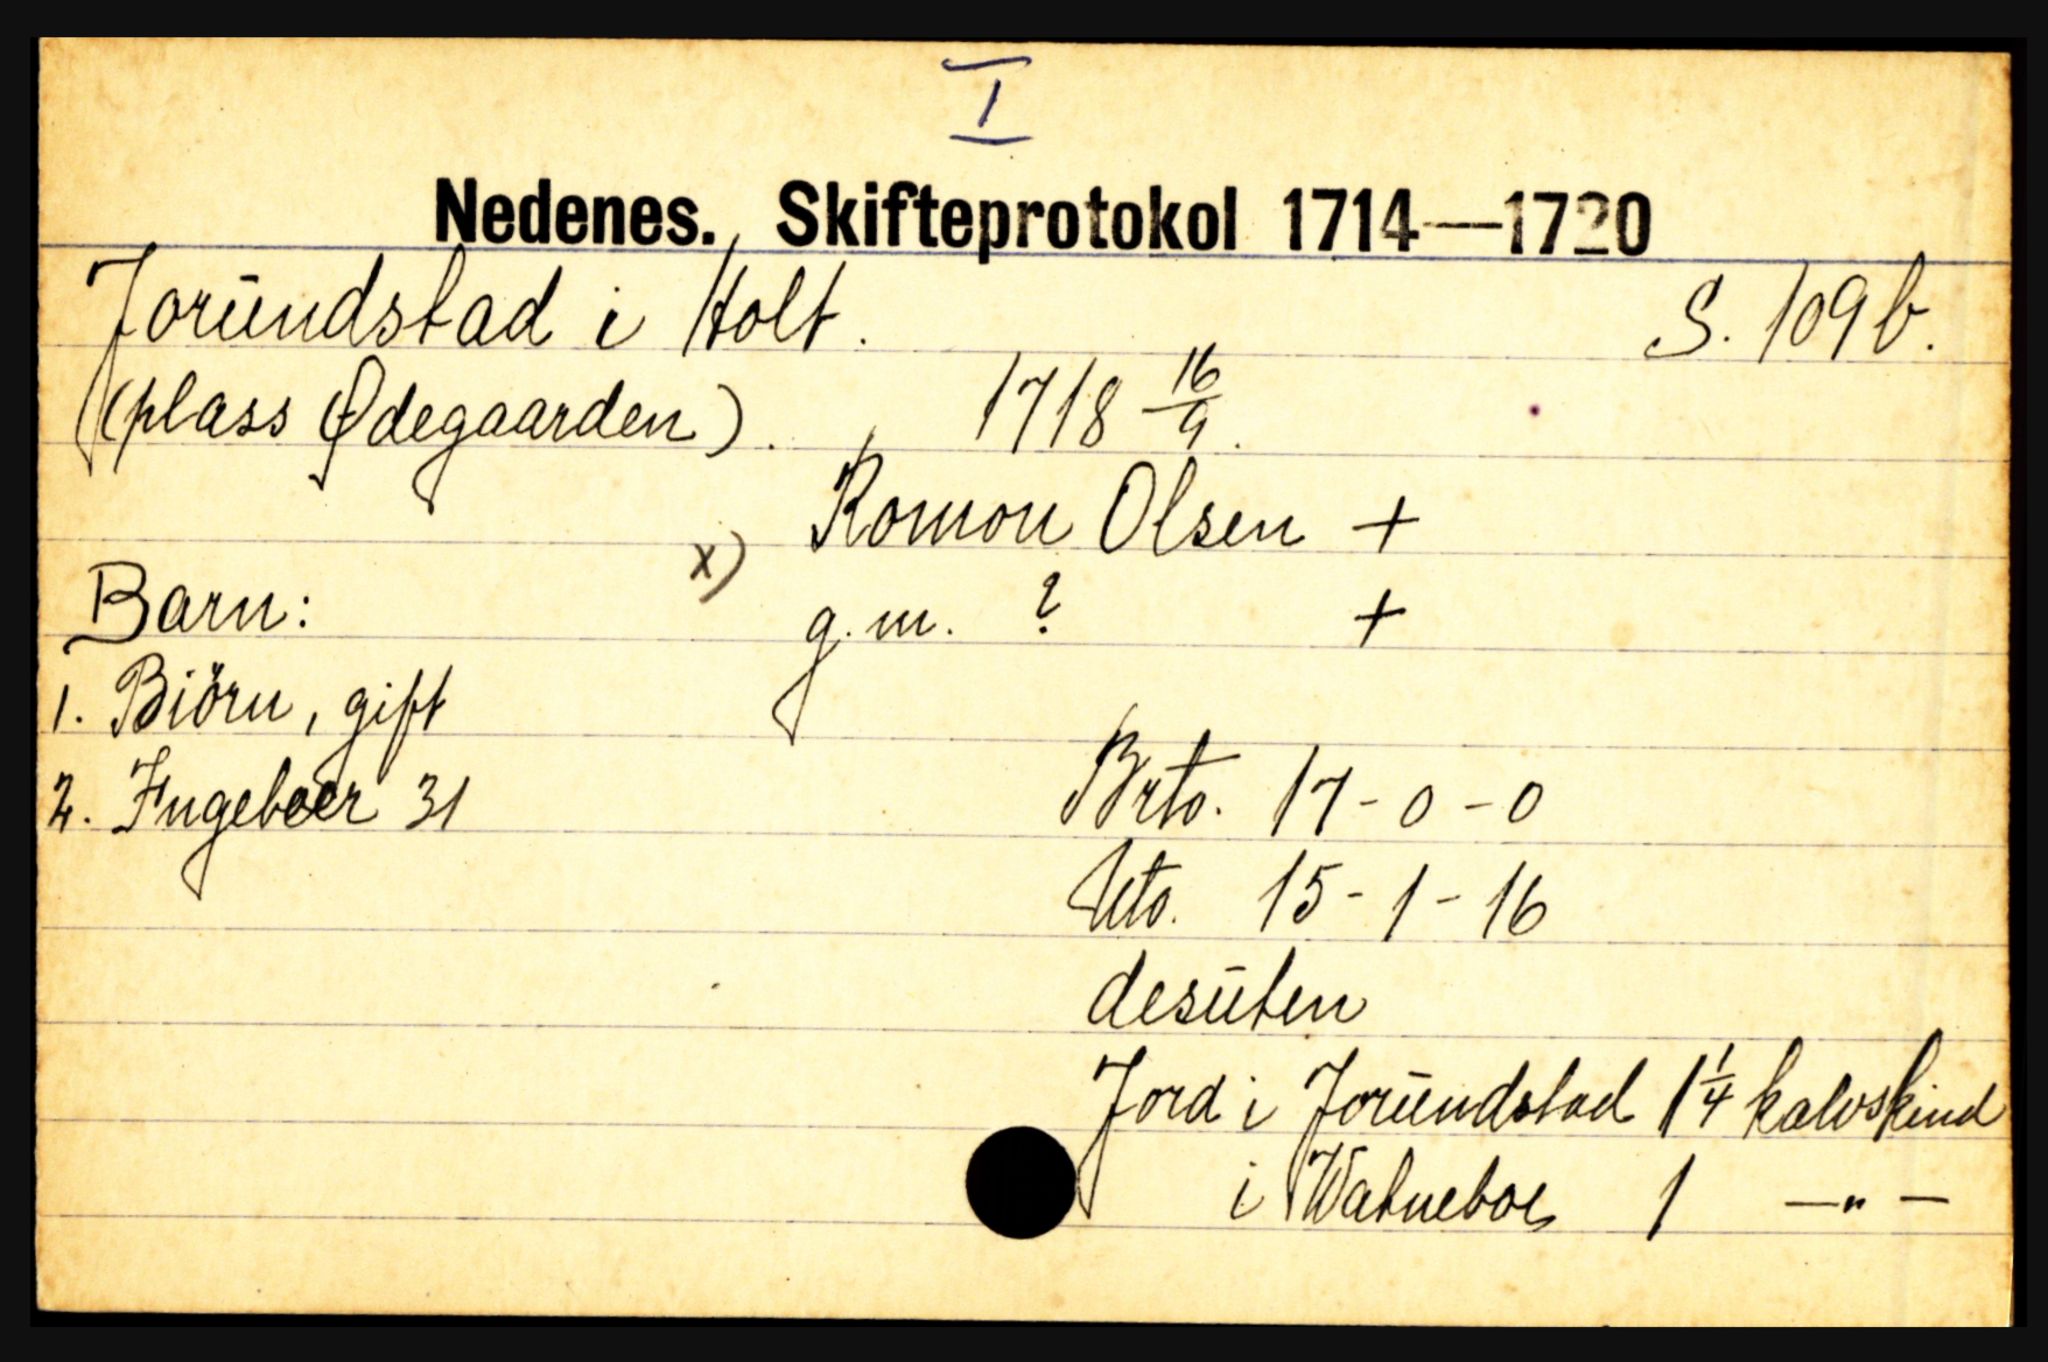 I
Nedenes. Skifteprotokol 1714—1720
Jorŭndstad i Holt. S. 109b.
(plass Ødegaarden). 1718 16/9.
x) Romon Olsen +
Barn: g.m. ? +
1. Biörn, gift
2. Ingeboer 31 Brto. 17-0-0
Nto. 15-1-16
desŭten
Jord i Jorŭndstad 1 1/4 kalvskind
i Watneboe 1 —"—